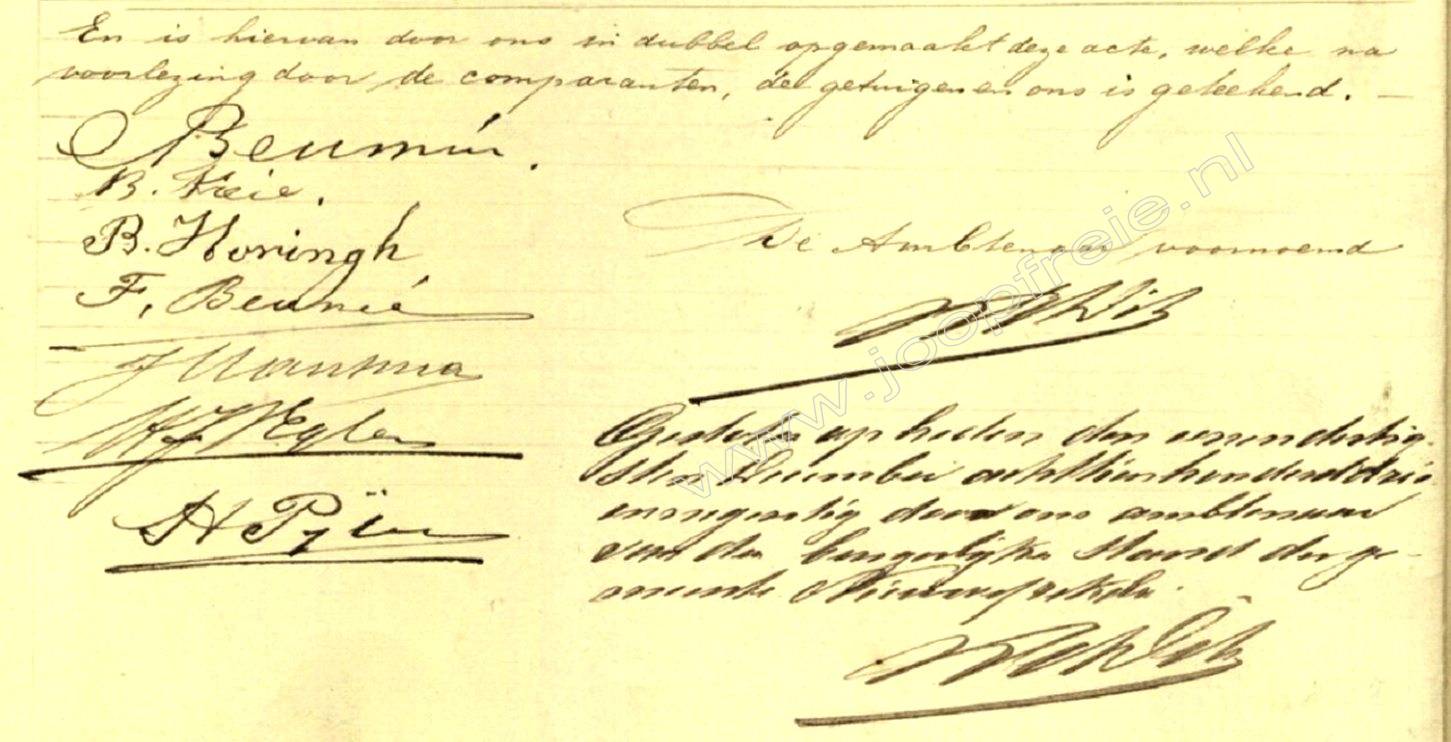 En is hiervan door ons in dubbel opgemaakt deze acte, welke na
voorlezing door de comparanten, de getuigen en ons is geteekend. —
Beumer.
B. Freie.
B. Honingh
F. Beunié
De Ambtenaar voornoemd
J Nauwna
HJ Eylers
Gesloten op heden den eenendertig-
sten December achttienhonderd drie
en negentig door ons ambtenaar
van den burgerlijken stand der ge-
meente Nieuwe Pekela.
www.joopfreie.nl